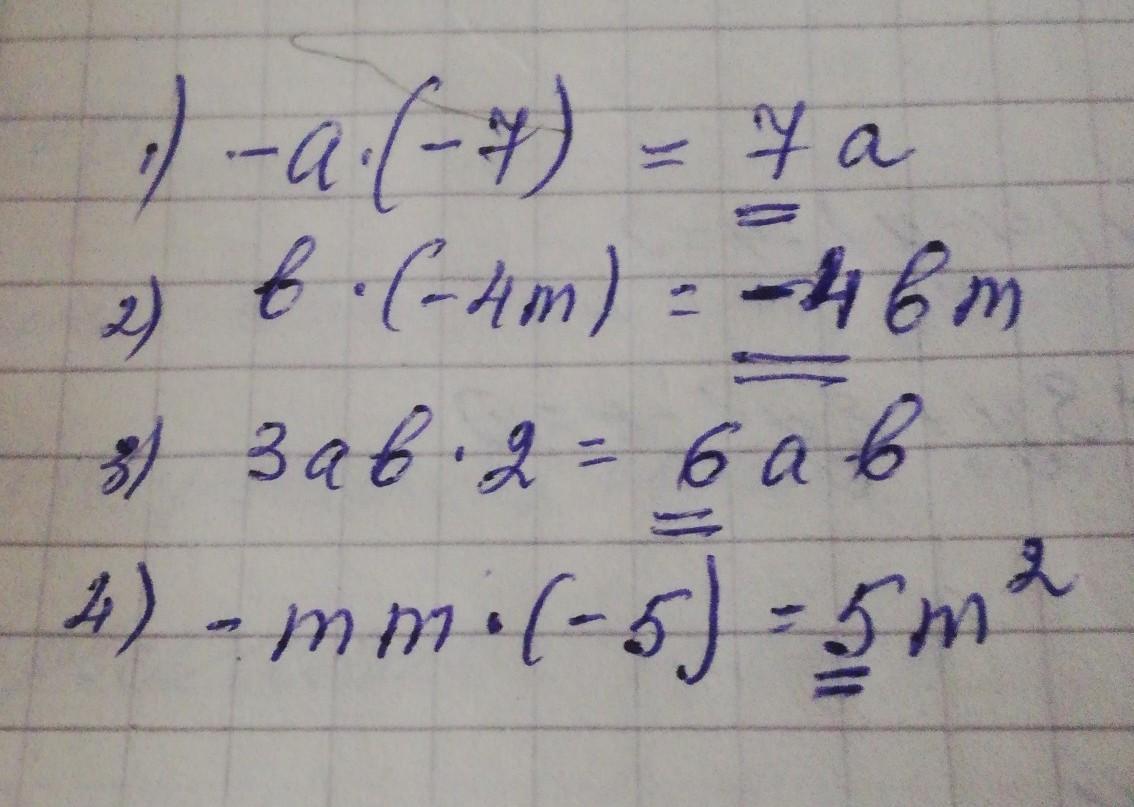 1) -a·(-7) = 7a
2) b·(-4m) = -4bm
3) 3ab·2 = 6ab
4) -mm·(-5) = 5m²